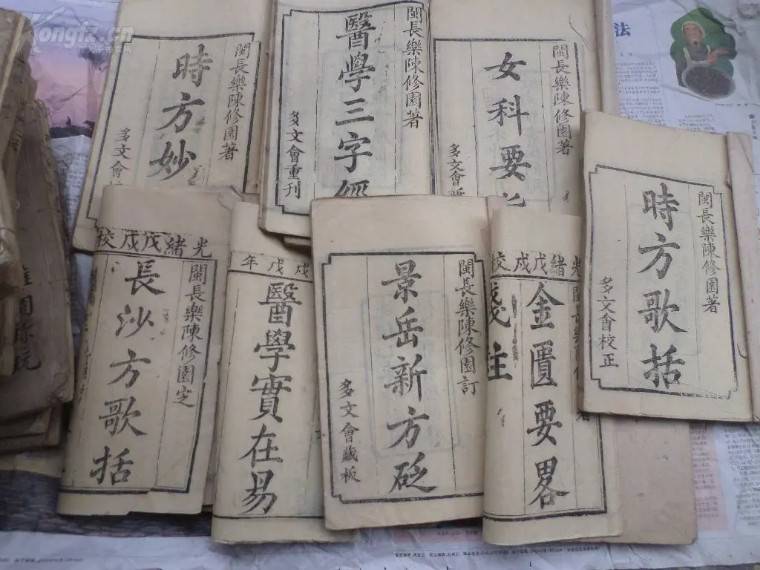 Kongfz.cn
閩長樂陳修園著
時方妙
多文會
閩長樂陳修園著
醫學三字經
多文會重刊
閩長樂陳修園著
女科要
多文會
法
閩長樂陳修園著
時方歌括
多文會校正
光緒戊戌校
閩長樂陳修園定
長沙方歌括
戊戌年
醫學實在易
閩長樂陳修園訂
景岳新方砭
多文會藏板
光緒戊戌校
金匱要畧
淺註